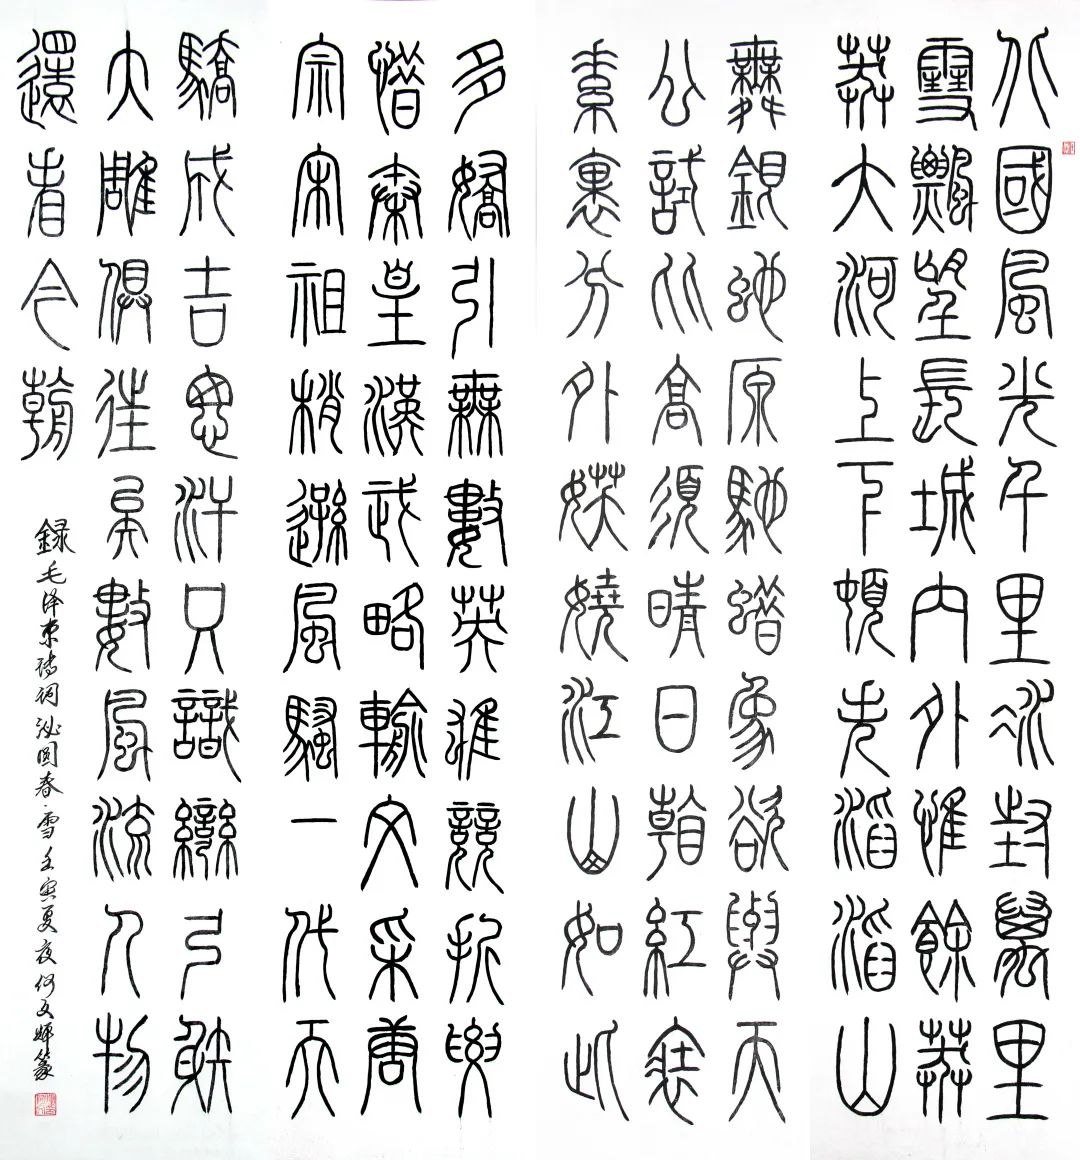 北國風光千里冰封萬里
雪飄望長城內外惟餘莽
莽大河上下頓失滔滔山
舞銀蛇原馳蜡象欲與天
公試比高須晴日看紅裝
素裹分外妖嬈江山如此
多嬌引無數英雄競折腰
惜秦皇漢武略輸文采唐
宗宋祖稍遜風騷一代天
驕成吉思汗只識彎弓射
大雕俱往矣數風流人物
還看今朝
録毛泽東诗词沁园春·雪壬寅夏夜何文輝篆